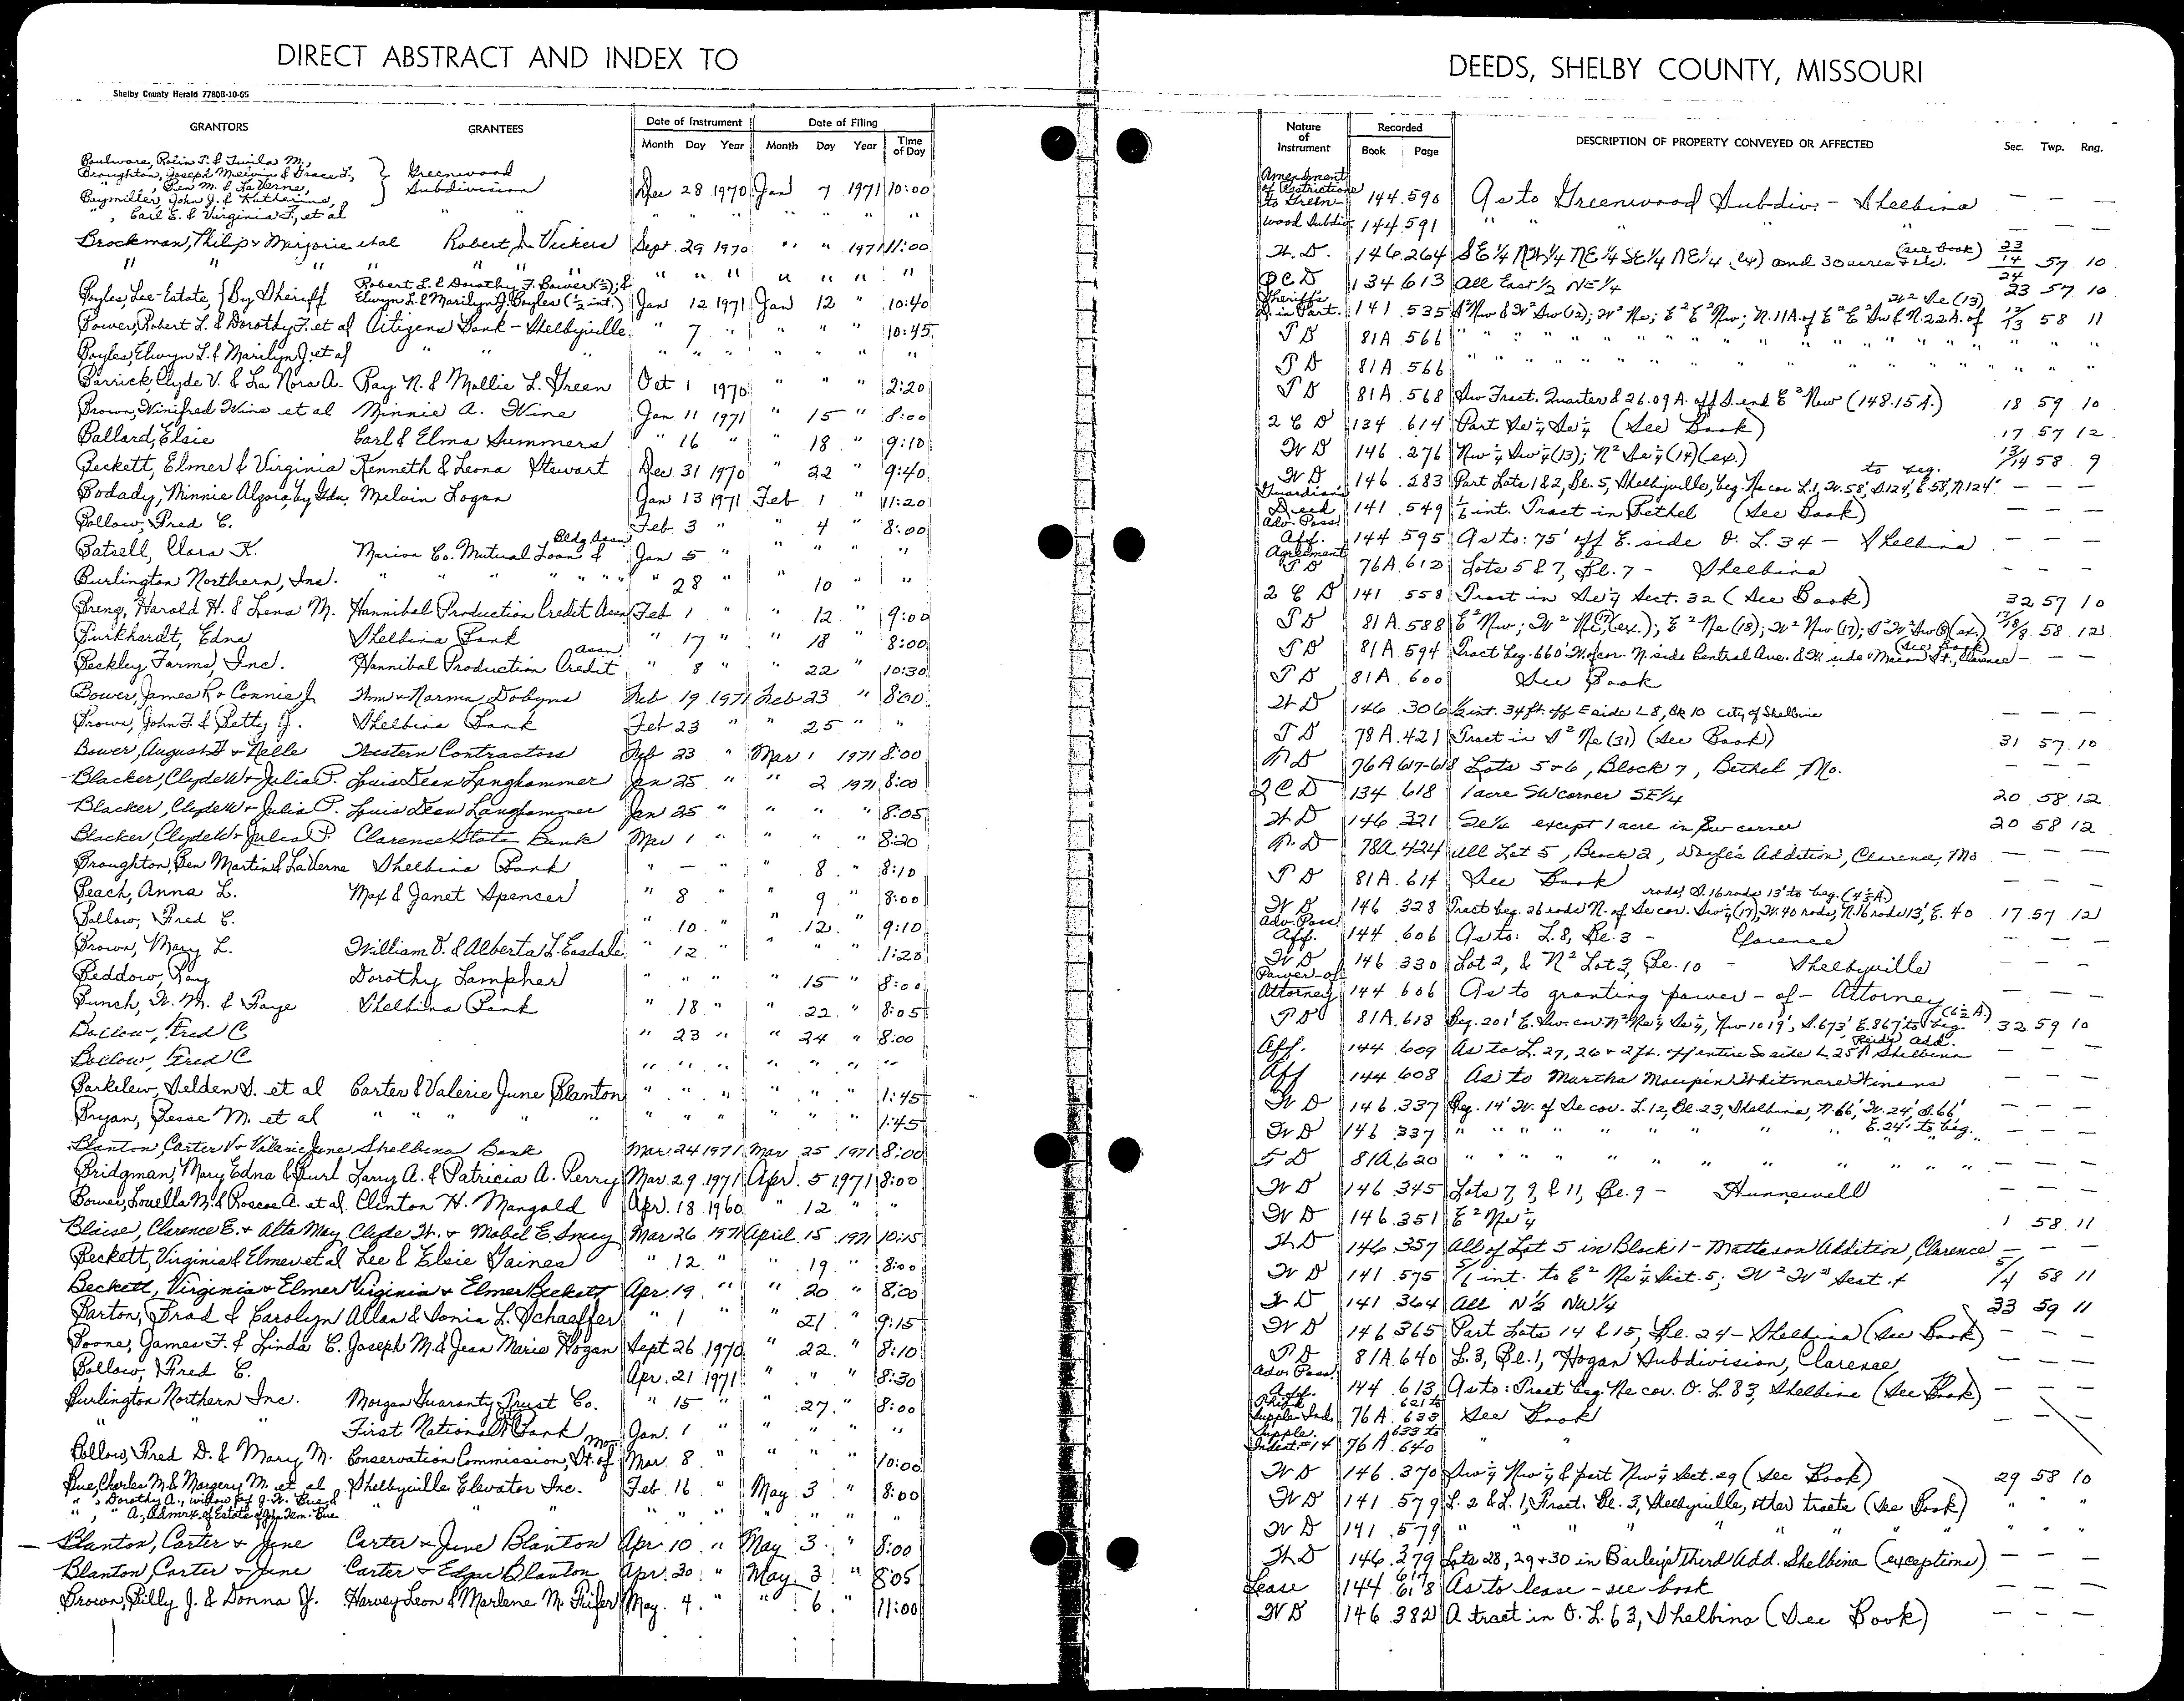 DIRECT ABSTRACT AND INDEX TO
Shelby County Herald 7780B-10-65
GRANTORS GRANTEES Date of Instrument Date of Filing
Month Day Year Month Day Year Time of Day
Boulware, Robin T. & Twila M.,
Broughton, Joseph Melvin & Grace L., } Greenwood
" , Ben M. & LaVerne, Subdivision Dec 28 1970 Jan 7 1971 10:00
Baymiller, John J. & Katherine,
" , Carl E. & Virginia F., et al " " " " " " " "
Brockman, Philip & Marjorie et al Robert J. Vickers Sept 29 1970 " " 1971 11:00
" " " " " " " " " " "
Boyles, Lee-Estate, {By Sheriff Robert L. & Dorothy F. Bower (½); &
Elwyn L. & Marilyn J. Boyles (½ int.) Jan 12 1971 Jan 12 " 10:40
Bower, Robert L. & Dorothy F. et al Citizens Bank - Shelbyville " 7 " " " " 10:45
Boyles, Elwyn L. & Marilyn J. et al " " " " " " " " " "
Barrick, Clyde V. & La Nora A. Ray N. & Mollie L. Green Oct 1 1970 " " " 2:20
Brown, Winifred Wine et al Minnie A. Wine Jan 11 1971 " 15 " 8:00
Ballard, Elsie Carl & Elma Summers " 16 " " 18 " 9:10
Beckett, Elmer & Virginia Kenneth & Leona Stewart Dec 31 1970 " 22 " 9:40
Bodady, Minnie Algora, by Gdn. Melvin Logan Jan 13 1971 Feb 1 " 11:20
Bollow, Fred C. Feb 3 " " 4 " 8:00
Batsell, Clara K. Marion Co. Mutual Loan & Bldg Assn Jan 5 " " " " "
Burlington Northern, Inc. " " " " " " 28 " " 10 " "
Breng, Harold H. & Lena M. Hannibal Production Credit Assn Feb 1 " " 12 " 9:00
Burkhardt, Edna Shelbina Bank " 17 " " 18 " 8:00
Beckley Farms, Inc. Hannibal Production Credit Assn. " 8 " " 22 " 10:30
Bower, James R & Connie J Wm & Norma Dobyns Feb 19 1971 Feb 23 " 8:00
Brown, John F. & Betty J. Shelbina Bank Feb 23 " " 25 " "
Bower, August F & Nelle Western Contractors Feb 23 " Mar 1 1971 8:00
Blacker, Clyde W & Julia P. Louis Dean Langhammer Jan 25 " " 2 1971 8:00
Blacker, Clyde W & Julia P. Louis Dean Langhammer Jan 25 " " " " 8:05
Blacker, Clyde W & Julia P. Clarence State Bank Mar 1 " " " " 8:20
Broughton, Ben Martin & LaVerne Shelbina Bank " — " " 8 " 8:10
Beach, Anna L. Max & Janet Spencer " 8 " " 9 " 8:00
Bollow, Fred C. " 10 " " 12 " 9:10
Brown, Mary L. William D. & Alberta L. Easdale " 12 " " " " 1:20
Beddow, Ray Dorothy Lampher " " " " 15 " 8:00
Bunch, W. M. & Faye Shelbina Bank " 18 " " 22 " 8:05
Bollow, Fred C " 23 " " 24 " 8:00
Bollow, Fred C " " " " " " "
Barkelew, Selden S. et al Carter & Valerie June Blanton " " " " " " 1:45
Bryan, Jesse M. et al " " " " " " " " " " 1:45
Blanton, Carter V & Valerie June Shelbina Bank Mar 24 1971 Mar 25 1971 8:00
Bridgman, Mary Edna & Burl Larry A. & Patricia A. Perry Mar. 29 1971 Apr. 5 1971 8:00
Bower, Louella M. & Roscoe A. et al. Clinton H. Mangold Apr. 18 1960 " 12 " "
Blaise, Clarence E. & Alta May Clyde W. & Mabel E. Smey Mar 26 1971 April 15 1971 10:15
Beckett, Virginia & Elmer et al Lee & Elsie Gaines " 12 " " 19 " 8:00
Beckett, Virginia & Elmer Virginia & Elmer Beckett Apr. 19 " " 20 " 8:00
Barton, Brad & Carolyn Allan & Sonia L. Schaeffer " 1 " " 21 " 9:15
Boone, James F. & Linda C. Joseph M. & Jean Marie Hogan Sept 26 1970 " 22 " 8:10
Bollow, Fred C. Apr. 21 1971 " " " 8:30
Burlington Northern Inc. Morgan Guaranty Trust Co. " 15 " " 27 " 8:00
" " " First National Bank Jan. 1 " " " " "
Bollow, Fred D. & Mary M. Conservation Commission, St. of Mo. Mar. 8 " " " " 10:00
Bue, Charles M. & Margery M. et al Shelbyville Elevator Inc. Feb 16 " May 3 " 8:00
" , Dorothy A., widow of J. W. Bue, &
" , " A., Admrx of Estate of Bue " " " " " " " " "
Blanton, Carter & June Carter & June Blanton Apr. 10 " May 3 " 8:00
Blanton, Carter & June Carter & Edgar Blanton Apr. 30 " May 3 " 8:05
Brown, Billy J. & Donna Y. Harvey Leon & Marlene M. Fifer May. 4 " " 6 " 11:00
DEEDS, SHELBY COUNTY, MISSOURI
Nature of Instrument Recorded DESCRIPTION OF PROPERTY CONVEYED OR AFFECTED Sec. Twp. Rng.
Book Page
Amendment of Restrictions to Green- 144 590 As to Greenwood Subdiv. - Shelbina — — —
wood Subdiv. 144 591 " " " " — — —
W. D. 146 264 SE¼ NW¼ NE¼ SE¼ NE¼ (ex) and 30 acres & etc. (see book) 23 14 24 57 10
Q C D 134 613 All East ½ NE¼ 23 57 10
Sheriff's D. in Part. 141 535 S²Nw & W²Sw(12); W² Ne; E² E² Nw; N. 11A. of E² E² Sw & N. 22A. of W² Se (13) 12/13 58 11
T D 81A 566 " " " " " " " " " "
T D 81A 566 " " " " " " " " " "
T D 81A 568 Sw Fract. Quarter & 26.09 A. off S. end E² Nw (148.15 A.) 18 59 10
2 C D 134 614 Part Se¼ Se¼ (See Book) 17 57 12
W D 146 276 Nw¼ Sw¼ (13); N² Se¼ (14)(ex.) 13/14 58 9
W D 146 283 Part Lots 1&2, Bl. 5, Shelbyville, beg. Ne cor L.1, W. 58', S. 124', E. 58', N. 124' to beg. — — —
Guardian's Deed 141 549 ⅙ int. Tract in Bethel (See Book) — — —
Adv. Poss. Aff. 144 595 As to: 75' off E. side O. L. 34 - Shelbina — — —
Agreement
T D 76A 612 Lots 5 & 7, Bl. 7 - Shelbina — — —
2 C D 141 558 Tract in Se¼ Sect. 32 (See Book) 32 57 10
T D 81A 588 E² Nw; W² Ne(7)(ex.); E² Ne (18); W² Nw (17); S² W² Sw(8)(ex.) 58 12
T D 81A 594 Tract beg. 660' W. of cor. N. side Central Ave. & W. side Macon St., Clarence (See Book) — — —
T D 81A 600 See Book
W D 146 306 ½ int. 34 ft. off E side L 8, Bk 10 City of Shelbina — — —
T D 78A 421 Tract in S² Ne (31) (See Book) 31 57 10
M D 76A 617-618 Lots 5 & 6, Block 7, Bethel Mo. — — —
2 C D 134 618 1 acre SW corner SE¼ 20 58 12
W D 146 321 Se¼ except 1 acre in Sw corner 20 58 12
M D 78A 424 All Lot 5, Block 2, Doyle's Addition, Clarence, Mo — — —
T D 81A 614 See Book — — —
W D 146 328 Tract beg. 26 rods N. of Se cor. Sw¼ (17), W. 40 rods, N. 16 rods 13', E. 40 rods, S. 16 rods 13' to beg. (4½ A) 17 57 12
Adv. Poss. Aff. 144 606 As to: L. 8, Bl. 3 - Clarence — — —
W D 146 330 Lot 2, & N² Lot 3, Bl. 10 - Shelbyville — — —
Power-of Attorney 144 606 As to granting power-of-Attorney — — —
T D 81A 618 Beg. 201' E. Sw. cor. N² Ne¼ Se¼, Nw 1019', S. 673' E. 867' to beg. (6½ A.) 32 59 10
Aff. 144 609 As to L. 27, 26 & 2 ft. off entire So side L 25 Add. Shelbina — — —
Aff 144 608 As to Martha Maupin Whitmore Winans — — —
W D 146 337 Beg. 14' W. of Se cor. L. 12, Bl. 23, Shelbina, N. 66', W. 24', S. 66', E. 24' to beg. — — —
W D 146 337 " " " " " " " " " — — —
T D 81A 620 " " " " " " " " " — — —
W D 146 345 Lots 7, 9, & 11, Bl. 9 - Hunnewell — — —
W D 146 351 E² Ne¼ 1 58 11
W D 146 357 All of Lot 5 in Block 1 - Matteson Addition, Clarence — — —
W D 141 575 5/6 int. to E² Ne¼ Sect. 5; W² W² Sect. 4 5/4 58 11
W D 141 364 All N½ NW¼ 33 59 11
W D 146 365 Part Lots 14 & 15, Bl. 24 - Shelbina (See Book) — — —
T D 81A 640 L. 3, Bl. 1, Hogan Subdivision, Clarence — — —
Adv. Poss. Aff. 144 613 As to: Tract beg. Ne cor. O. L. 83, Shelbina (See Book) — — —
Supple. Ind. 76A 621 to 633 See Book — —
Supple. Indent. #14 76A 633 to 640 " "
W D 146 370 Sw¼ Nw¼ & part Nw¼ Sect. 29 (See Book) 29 58 10
W D 141 579 L. 2 & L. 1, Fract. Bl. 3, Shelbyville, other tracts (See Book) " " "
W D 141 579 " " " " " " " " "
W D 146 379 Lots 28, 29 & 30 in Bailey's Third Add. Shelbina (exceptions) — — —
Lease 144 617 618 As to lease - see book — — —
W D 146 382 A tract in O. L. 63, Shelbina (See Book) — — —